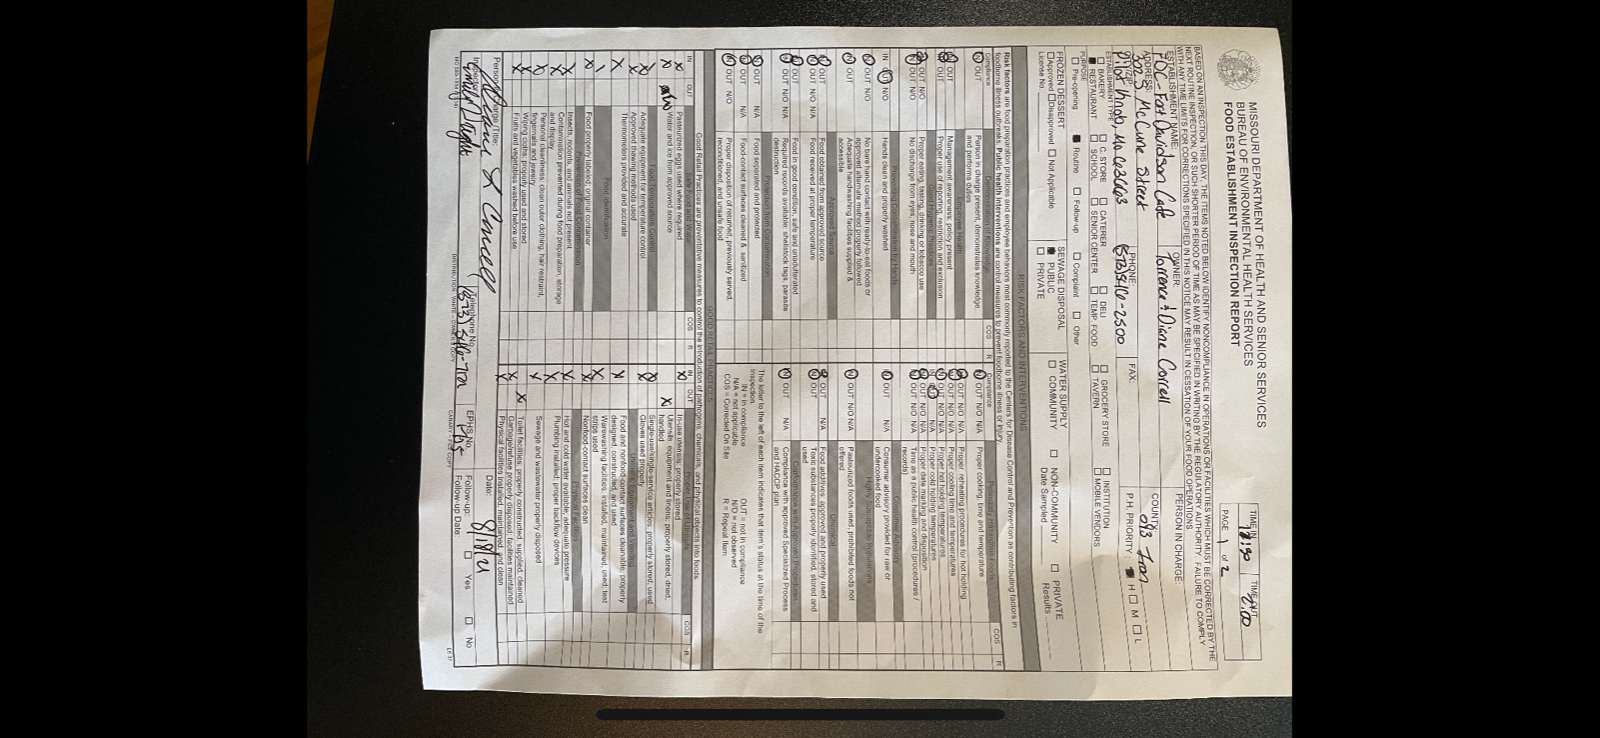 MISSOURI DEPARTMENT OF HEALTH AND SENIOR SERVICES
BUREAU OF ENVIRONMENTAL HEALTH SERVICES
FOOD ESTABLISHMENT INSPECTION REPORT
TIME IN
TIME OUT 2:00
PAGE 1 of 2
BASED ON AN INSPECTION THIS DAY, THE ITEMS NOTED BELOW IDENTIFY NONCOMPLIANCE IN OPERATIONS OR FACILITIES WHICH MUST BE CORRECTED BY THE
NEXT ROUTINE INSPECTION, OR SUCH SHORTER PERIOD OF TIME AS MAY BE SPECIFIED IN WRITING BY THE REGULATORY AUTHORITY. FAILURE TO COMPLY
WITH ANY TIME LIMITS FOR CORRECTIONS SPECIFIED IN THIS NOTICE MAY RESULT IN CESSATION OF YOUR FOOD OPERATIONS.
ESTABLISHMENT NAME: FDC - Fort Davidson Cafe
OWNER: Torrence & Diane Correll
PERSON IN CHARGE:
ADDRESS: McCune Street
COUNTY: 093 Iron
CITY/ZIP: Pilot Knob, Mo 63663
PHONE: 573 546-2500
FAX:
P.H. PRIORITY: H M L
ESTABLISHMENT TYPE
BAKERY C. STORE CATERER DELI GROCERY STORE INSTITUTION
RESTAURANT SCHOOL SENIOR CENTER TEMP. FOOD TAVERN MOBILE VENDORS
PURPOSE
Pre-opening Routine Follow-up Complaint Other
FROZEN DESSERT
Approved Disapproved Not Applicable
License No.
SEWAGE DISPOSAL
PUBLIC
PRIVATE
WATER SUPPLY
COMMUNITY NON-COMMUNITY PRIVATE
Date Sampled Results
RISK FACTORS AND INTERVENTIONS
Risk factors are food preparation practices and employee behaviors most commonly reported to the Centers for Disease Control and Prevention as contributing factors in
foodborne illness outbreaks. Public health interventions are control measures to prevent foodborne illness or injury.
Compliance Demonstration of Knowledge COS R
Person in charge present, demonstrates knowledge,
and performs duties
Employee Health
Management awareness; policy present
Proper use of reporting, restriction and exclusion
Good Hygienic Practices
Proper eating, tasting, drinking or tobacco use
No discharge from eyes, nose and mouth
Preventing Contamination by Hands
Hands clean and properly washed
No bare hand contact with ready-to-eat foods or
approved alternate method properly followed
Adequate handwashing facilities supplied &
accessible
Approved Source
Food obtained from approved source
Food received at proper temperature
Food in good condition, safe and unadulterated
Required records available: shellstock tags, parasite
destruction
Protection from Contamination
Food separated and protected
Food-contact surfaces cleaned & sanitized
Proper disposition of returned, previously served,
reconditioned, and unsafe food
Compliance Potentially Hazardous Foods COS R
Proper cooking, time and temperature
Proper reheating procedures for hot holding
Proper cooling time and temperatures
Proper hot holding temperatures
Proper cold holding temperatures
Proper date marking and disposition
Time as a public health control (procedures /
records)
Consumer Advisory
Consumer advisory provided for raw or
undercooked food
Highly Susceptible Populations
Pasteurized foods used, prohibited foods not
offered
Chemical
Food additives: approved and properly used
Toxic substances properly identified, stored and
used
Conformance with Approved Procedures
Compliance with approved Specialized Process
and HACCP plan
The letter to the left of each item indicates that item's status at the time of the
inspection.
IN = in compliance OUT = not in compliance
N/A = not applicable N/O = not observed
COS = Corrected On Site R = Repeat Item
GOOD RETAIL PRACTICES
Good Retail Practices are preventative measures to control the introduction of pathogens, chemicals, and physical objects into foods.
IN OUT Safe Food and Water COS R
Pasteurized eggs used where required
Water and ice from approved source
Food Temperature Control
Adequate equipment for temperature control
Approved thawing methods used
Thermometers provided and accurate
Food Identification
Food properly labeled; original container
Prevention of Food Contamination
Insects, rodents, and animals not present
Contamination prevented during food preparation, storage
and display
Personal cleanliness: clean outer clothing, hair restraint,
fingernails and jewelry
Wiping cloths: properly used and stored
Fruits and vegetables washed before use
IN OUT Proper Use of Utensils COS R
In-use utensils: properly stored
Utensils, equipment and linens: properly stored, dried,
handled
Single-use/single-service articles: properly stored, used
Gloves used properly
Utensils, Equipment and Vending
Food and nonfood-contact surfaces cleanable, properly
designed, constructed, and used
Warewashing facilities: installed, maintained, used; test
strips used
Nonfood-contact surfaces clean
Physical Facilities
Hot and cold water available; adequate pressure
Plumbing installed; proper backflow devices
Sewage and wastewater properly disposed
Toilet facilities: properly constructed, supplied, cleaned
Garbage/refuse properly disposed; facilities maintained
Physical facilities installed, maintained, and clean
Person in Charge /Title:
Date: 8/18/21
Inspector:
Telephone No. (573)
EPHS No.
Follow-up: Yes No
Follow-up Date: